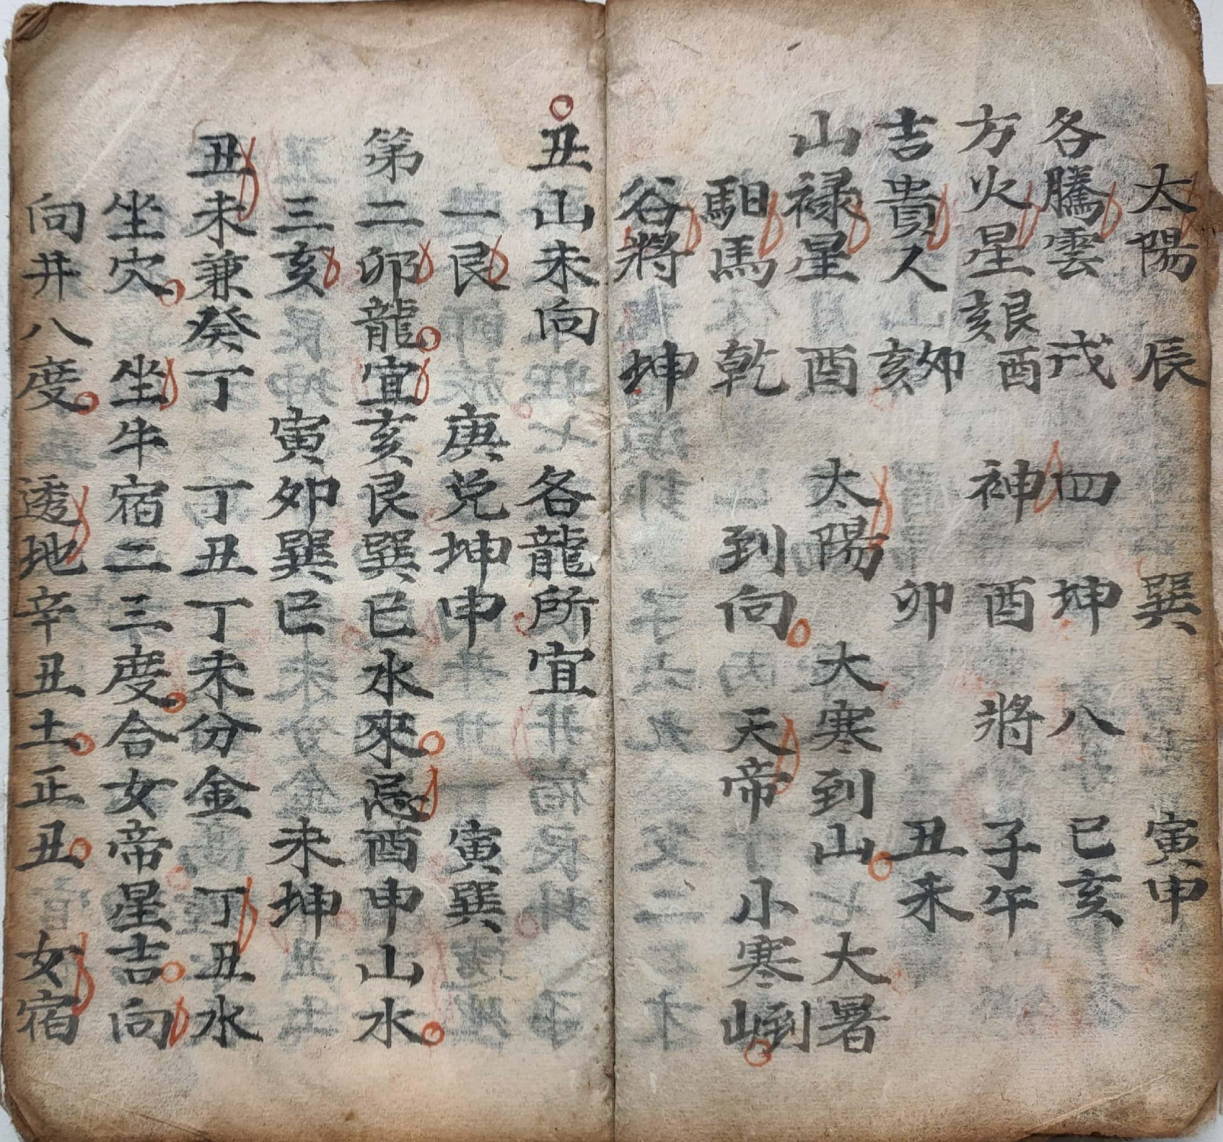 太陽 辰 巽 寅申
各騰雲 戌 四坤 八 巳亥
方火星 艮亥酉 神酉 將 子午
吉貴人 卯亥 卯 丑未
山祿星 酉 太陽 大寒到山 大暑
馹馬 乾 到向 天帝 小寒到山
谷將 坤
丑山未向 各龍所宜
一艮 庚兌坤申 寅巽
第二卯龍宜亥艮巽巳水來忌酉申山水
三亥 寅卯巽巳 未坤
丑未兼癸丁 丁丑丁未分金 丁丑水
坐穴 坐牛宿二三度合女帝星吉向
向井八度 透地辛丑土正丑 女宿